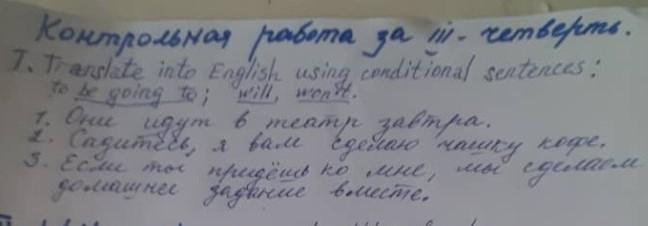 Контрольная работа за III - четверть.
I. Translate into English using conditional sentences:
to be going to; will, won't.
1. Они идут в театр завтра.
2. Садитесь, я вам сделаю чашку кофе.
3. Если ты придёшь ко мне, мы сделаем
домашнее задание вместе.